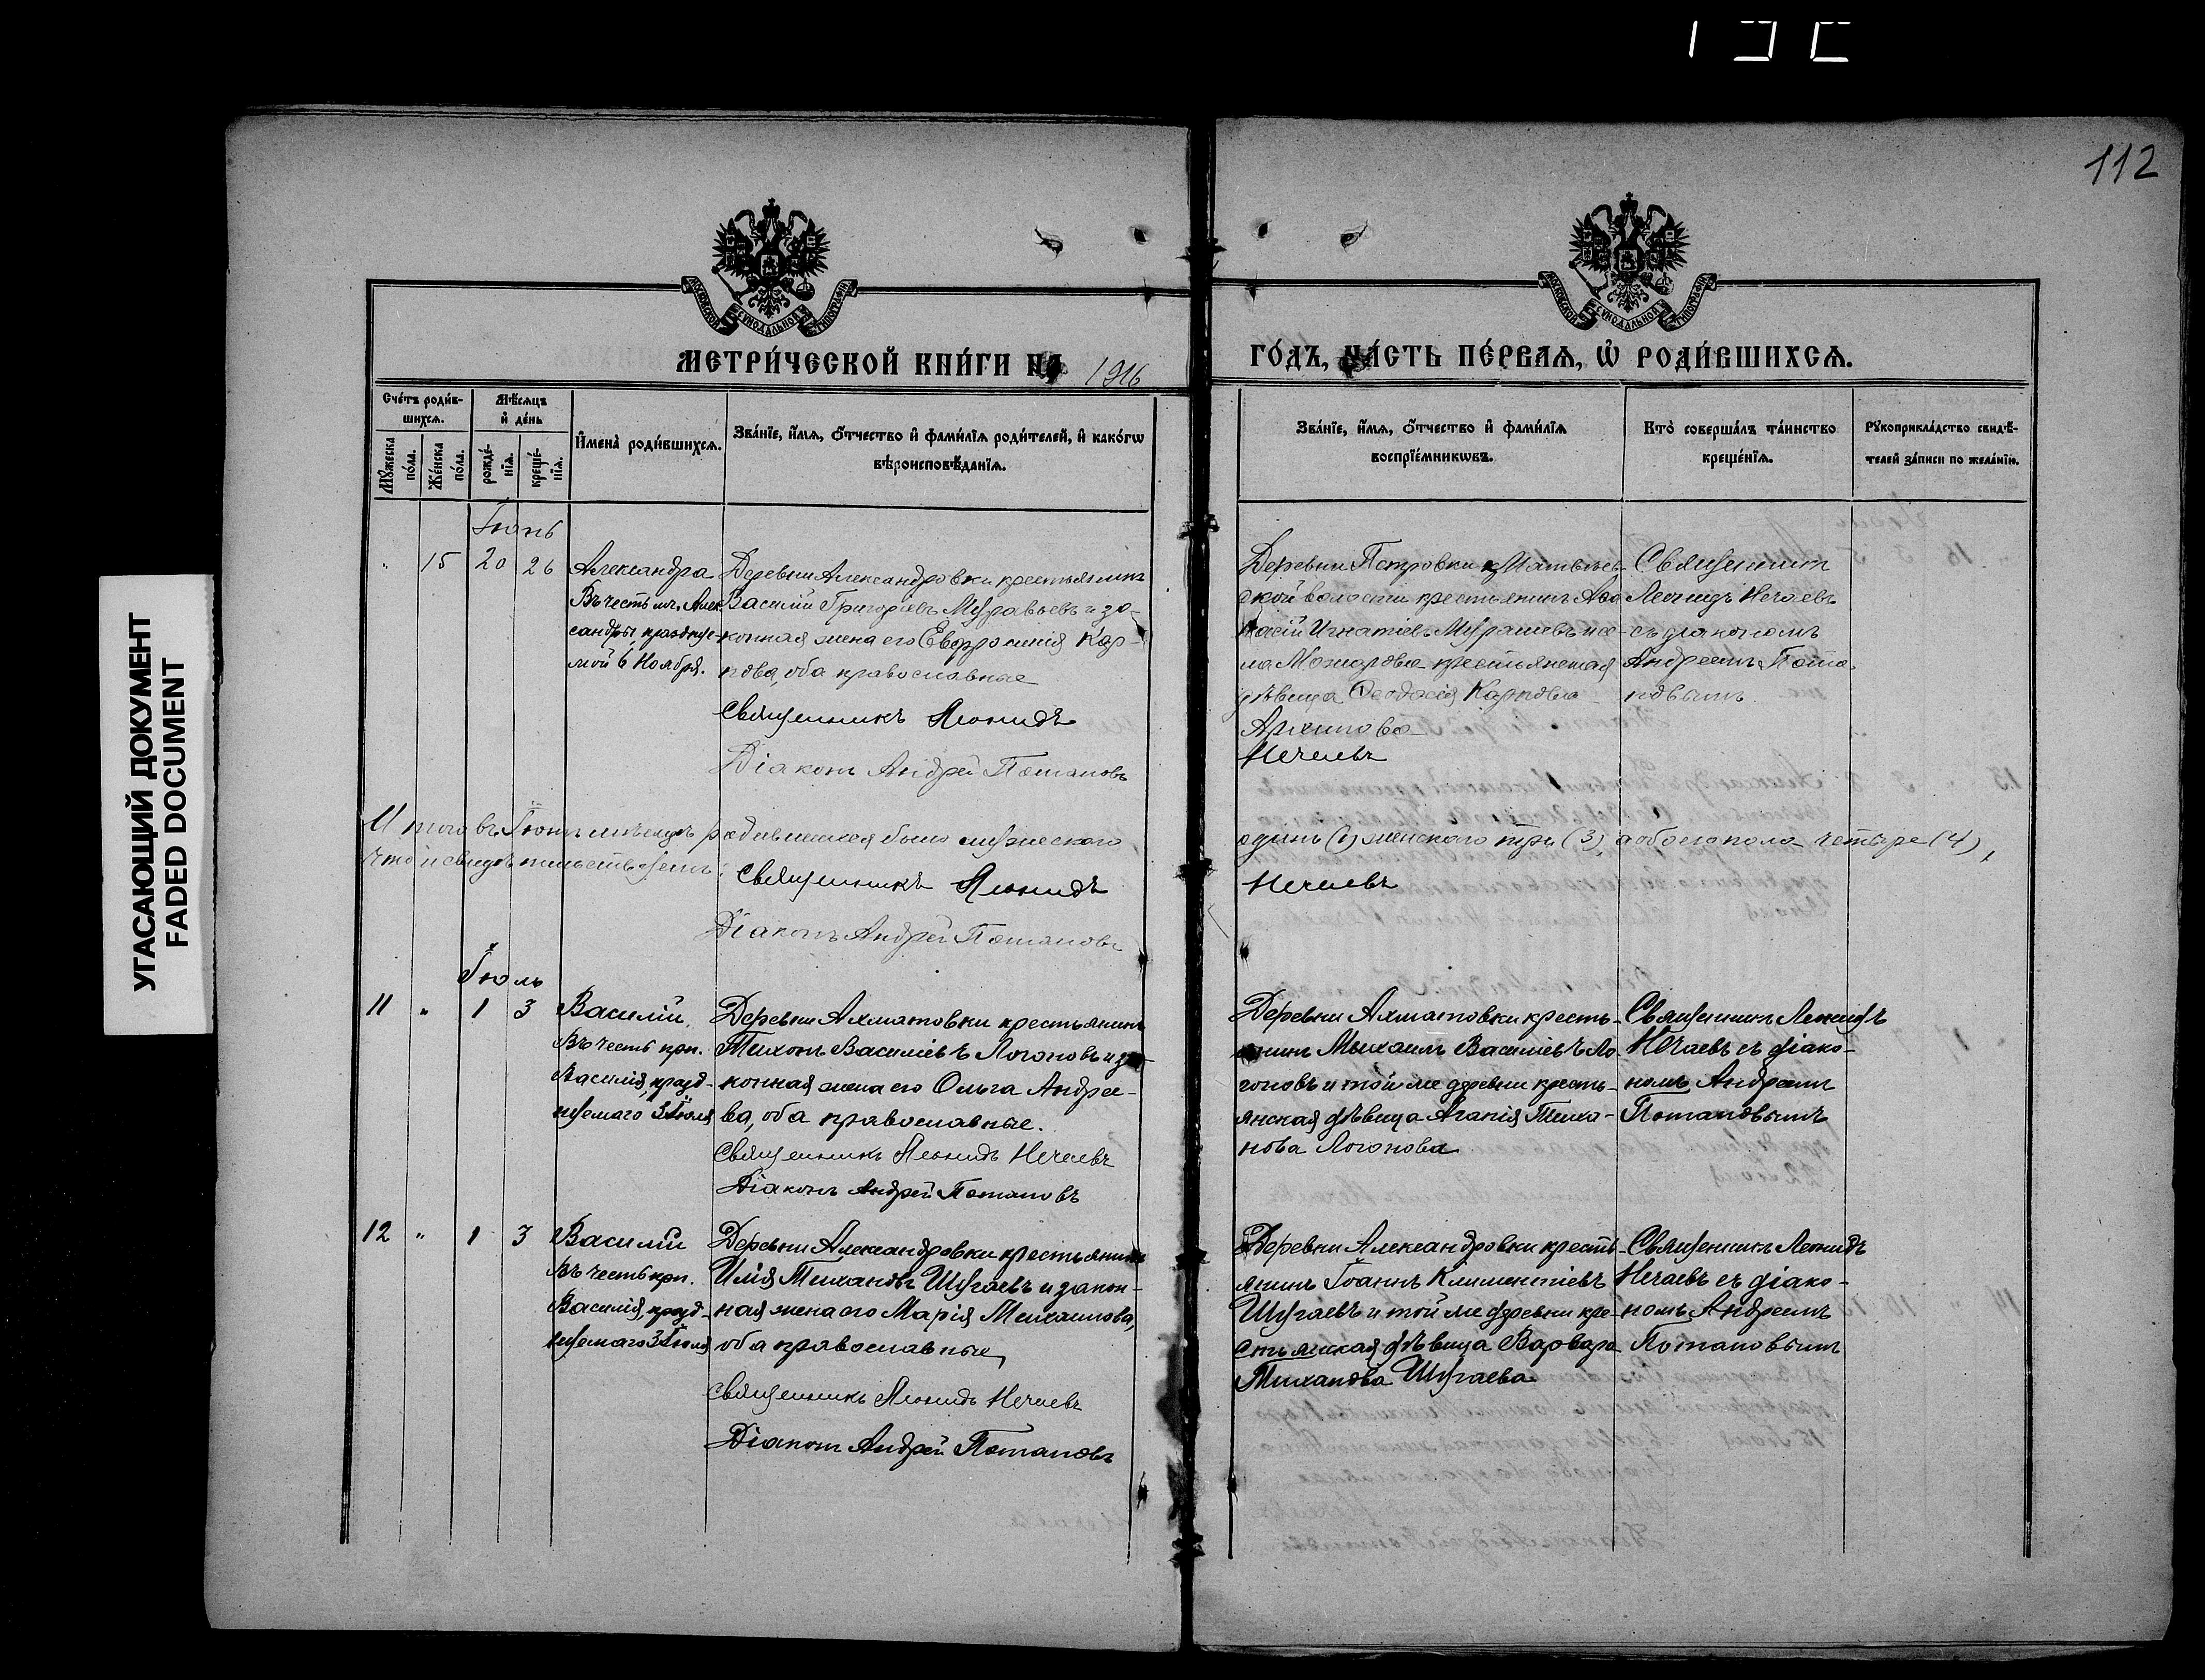 112
УГАСАЮЩИЙ ДОКУМЕНТ
FADED DOCUMENT
МОСКОВСКОЙ СѴНОДАЛЬНОЙ ТИПОГРАФІИ
МОСКОВСКОЙ СѴНОДАЛЬНОЙ ТИПОГРАФІИ
МЕТРИ́ЧЕСКОЙ КНИ́ГИ НА 1916
ГО́ДЪ, ЧА́СТЬ ПЕ́РВАѦ, Ѡ҆ РОДИ́ВШИХСѦ.
Сче́тъ роди́в-
шихсѧ.
Мꙋ́жеска по́ла.
Же́нска по́ла.
Мѣ́сѧцъ
и҆ де́нь
рожде́-
нїѧ.
креще́-
нїѧ.
И҆мена̀ роди́вшихсѧ.
Зва́нїе, и҆́мѧ, ѻ҆́тчество и҆ фами́лїѧ роди́телей, и҆ како́гѡ
вѣроисповѣ́данїѧ.
Зва́нїе, и҆́мѧ, ѻ҆́тчество и҆ фами́лїѧ
воспрїе́мникѡвъ.
Кто̀ соверша́лъ та́инство
креще́нїѧ.
Рꙋкоприкла́дство свидѣ́-
телей за́писи по жела́нїю.
Іюнь
" 15 20 26
Александра
Въ честь мч. Алек
сандры, празднуе-
мой 6 Ноября.
Деревни Александровки крестьянинъ
Василій Григоріевъ Муравьевъ и за-
конная жена его Евфросинія Кар-
пова, оба православные
Священникъ Леонидъ
Діаконъ Андрей Потаповъ
Деревни Петровки
ской волости крестьянинъ
Игнатіевъ
крестьянская
дѣвица Ѳеодосія Карпова
Архипова
Нечаевъ
Священникъ
Леонидъ Нечаевъ
съ діакономъ
Андреемъ Пота-
повымъ
Итого въ Іюнѣ мѣсяцѣ родившихся было мужескаго
одинъ (1) женского три (3), а обоего пола четыре (4),
что и свидѣтельствуемъ:
Священникъ Леонидъ
Нечаевъ
Діаконъ Андрей Потаповъ
Іюль
11 " 1 3
Василій.
Въ честь прп.
Василія, празд-
нуемаго 3 Іюля
Деревни Ахматовки крестьянинъ
Тихонъ Василіевъ Логоновъ и за-
конная жена его Ольга Андрее-
ва, оба православные.
Священникъ Леонидъ Нечаевъ
Діаконъ Андрей Потаповъ
Деревни Ахматовки кресть-
янинъ Михаилъ Василіевъ Ло-
гоновъ и той же деревни кресть-
янская дѣвица Агапія Тихо-
нова Логонова
Священникъ Леонидъ
Нечаевъ съ діако-
номъ Андреемъ
Потаповымъ
12 " 1 3
Василій
Въ честь прп.
Василія, празд-
нуемаго 3 Іюля
Деревни Александровки крестьянинъ
Илія Тихановъ Шугаевъ и закон-
ная жена его Марія Михаилова,
оба православные,
Священникъ Леонидъ Нечаевъ
Діаконъ Андрей Потаповъ
Деревни Александровки кресть-
янинъ Іоаннъ Климентіевъ
Шугаевъ и той же деревни кре-
стьянская дѣвица Варвара
Тиханова Шугаева
Священникъ Леонидъ
Нечаевъ съ діако-
номъ Андреемъ
Потаповымъ